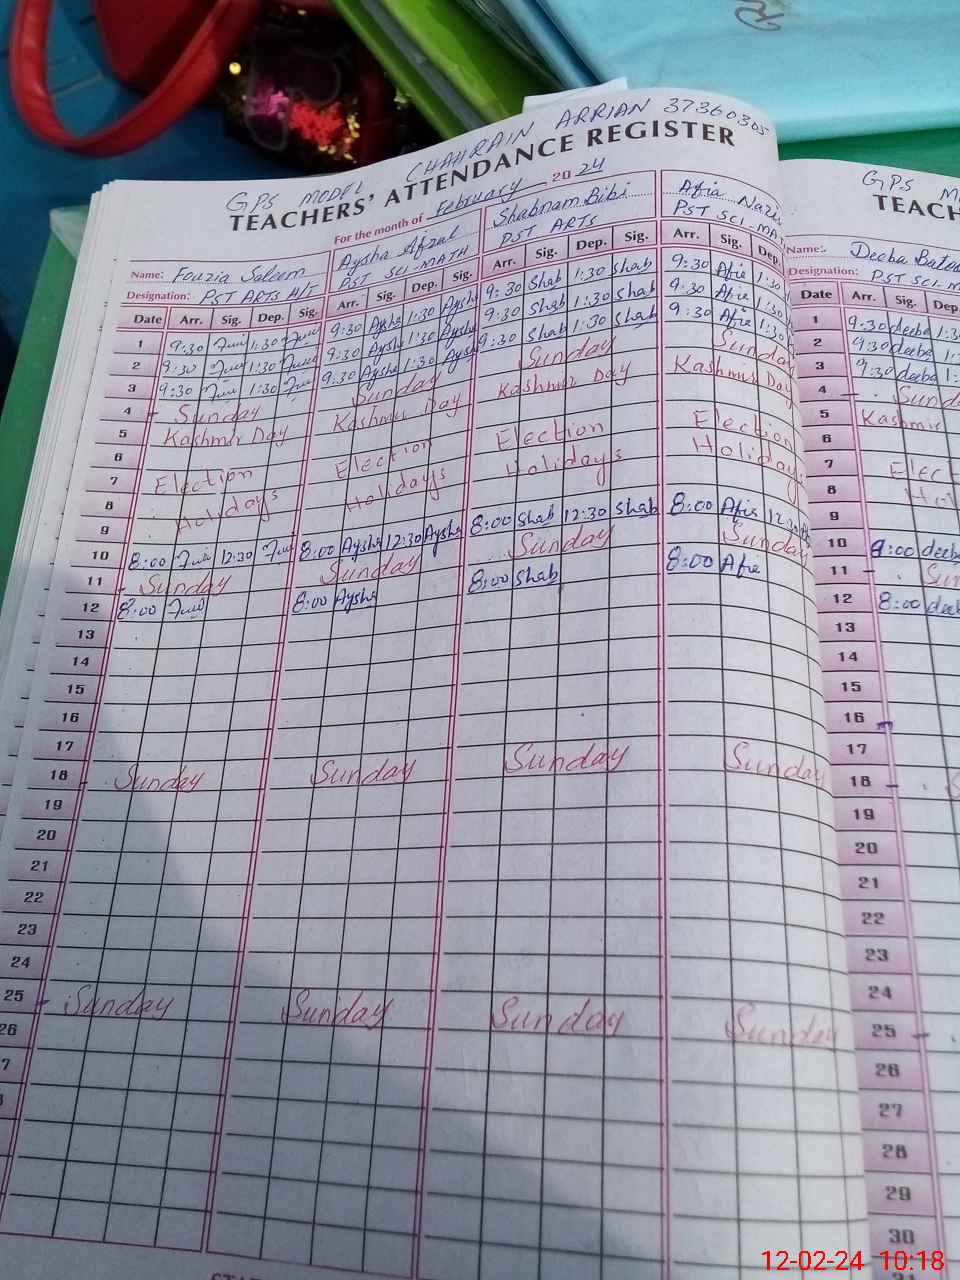 GPS MODEL CHAHRAIN ARRIAN 37360305
TEACHERS' ATTENDANCE REGISTER
For the month of February 2024
Name: Fouzia Saleem Aysha Afzal Shabnam Bibi Afia Nazi
Designation: PST ARTS H/T PST SCI-MATH PST ARTS PST SCI-MAT
Date Arr. Sig. Dep. Sig. Arr. Sig. Dep. Sig. Arr. Sig. Dep. Sig. Arr. Sig. Dep.
1 9:30 1:30 9:30 Aysha 1:30 Aysha 9:30 Shab 1:30 Shab 9:30 Afie 1:30
2 9:30 1:30 9:30 Aysha 1:30 Aysha 9:30 Shab 1:30 Shab 9:30 Afie 1:30
3 9:30 1:30 9:30 Aysha 1:30 Aysha 9:30 Shab 1:30 Shab 9:30 Afie 1:30
4 Sunday Sunday Sunday Sunday
5 Kashmir Day Kashmir Day Kashmir Day Kashmir Day
6
7 Election Election Election Election
8 Holidays Holidays Holidays Holidays
9
10 8:00 12:30 8:00 Aysha 12:30 Aysha 8:00 Shab 12:30 Shab 8:00 Afie 12:30
11 Sunday Sunday Sunday Sunday
12 8:00 8:00 Aysha 8:00 Shab 8:00 Afie
13
14
15
16
17
18 Sunday Sunday Sunday Sunday
19
20
21
22
23
24
25 Sunday Sunday Sunday Sunday
26
7
GPS M
TEACH
Name: Deeba Bato
Designation: PST SCI M
Date Arr. Sig. Dep
1 9:30 deeba 1:3
2 9:30 deeba 1:
3 9:30 deeba 1:
4 Sund
5 Kashmir
6
7 Elec
8 Hol
9
10 8:00 deeba
11 Sun
12 8:00 deeb
13
14
15
16
17
18 S
19
20
21
22
23
24
25
26
27
28
29
30
12-02-24 10:18